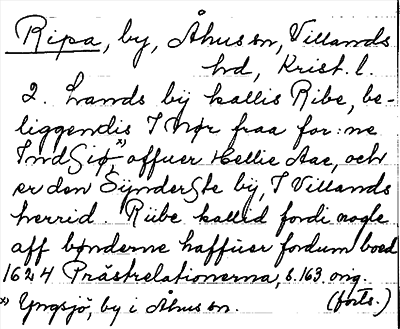 Ripa, by, Åhus sn, Villands
hd, Krist. l.
2. Lands bÿ kallis Ribe, be-
liggendis I Nør fraa for:ne
IndSiø,x) offuer Hellie Aae, och
er den SÿnderSte bÿ, I Villands
herrid. Riibe kalled fordi nogle
aff bønderne haffuer fordum boed
1624 Prästrelationerna, s. 163 orig.
x) Yngsjö, by i Åhus sn. (forts.)